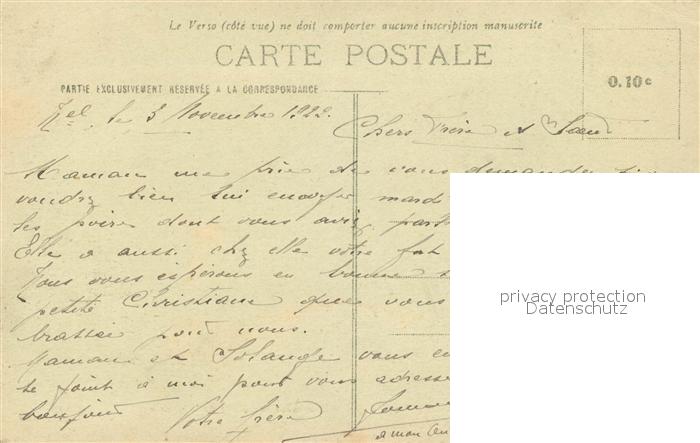 Le Verso (côté vue) ne doit comporter aucune inscription manuscrite
CARTE POSTALE
0.10 c
PARTIE EXCLUSIVEMENT RÉSERVÉE A LA CORRESPONDANCE
le 3 Novembre 1922.
Chers Frère et Soeur
Maman me prie de vous demander si
voudrez bien lui envoyer mardi
les poires dont vous avez parl
Elle a aussi chez elle votre fût
Tous vous espérons en bonne
petite Christiane que vous
brassez pour nous.
Maman et Solange vous en
se joint à moi pour vous adresse
bonjour Votre frère
a mon
privacy protection
Datenschutz